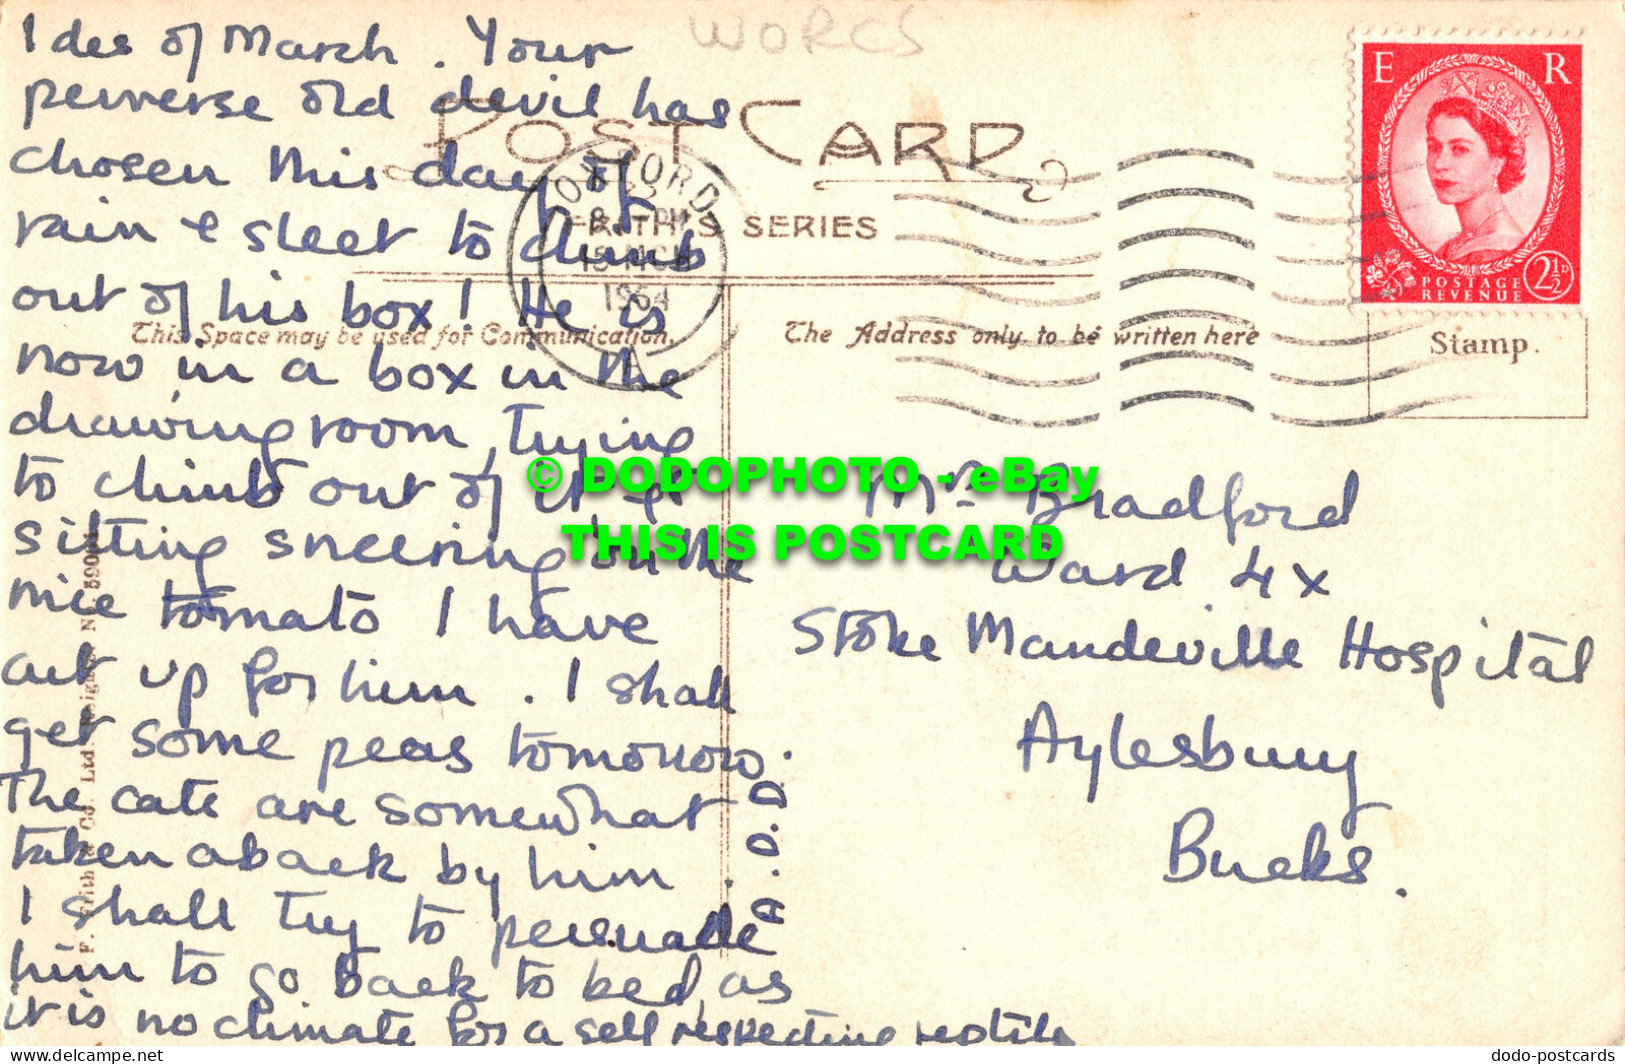 WORCS
Ides of March. Your
perverse old devil has
chosen this day of
rain & sleet to climb
out of his box! He is
now in a box in the
drawing room, trying
to climb out of it &
sitting sneering in the
nice tomato I have
cut up for him. I shall
get some peas tomorrow.
The cats are somewhat
taken aback by him.
I shall try to persuade
him to go back to bed, as
it is no climate for a self respecting reptile
POST CARD
FRITH'S SERIES
This Space may be used for Communication.
The Address only to be written here
OXFORD
PM
15 MCH
1964
A
E R
POSTAGE
REVENUE
2½D
Stamp.
© DODOPHOTO - eBay
THIS IS POSTCARD
Mrs Bradford
Ward 4x
Stoke Mandeville Hospital
Aylesbury
Bucks.
F. Frith & Co. Ltd. Reigate
delcampe.net
dodo-postcards